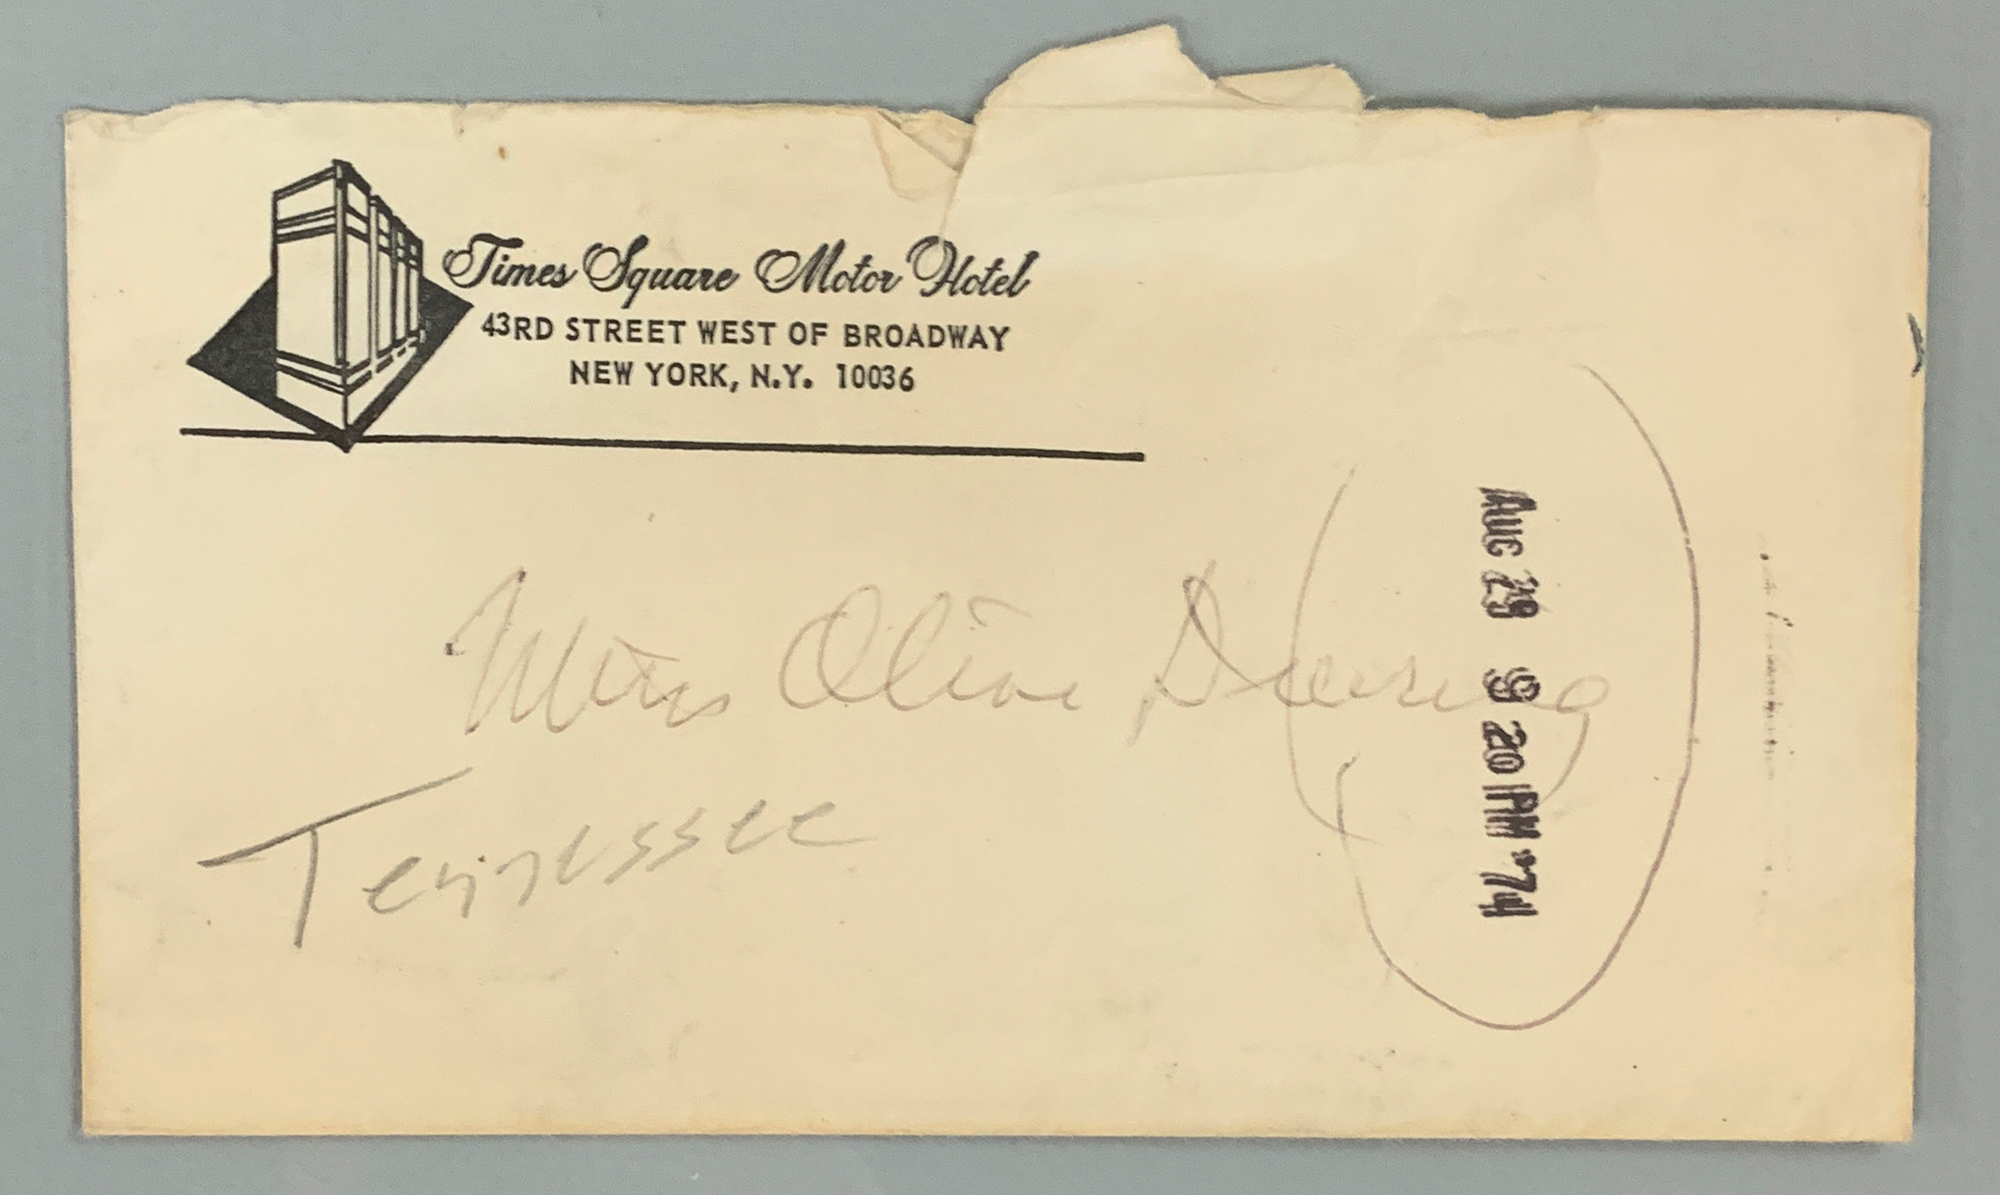 Times Square Motor Hotel
43RD STREET WEST OF BROADWAY
NEW YORK, N.Y. 10036
Miss Olive Deering
Tennessee
AUG 29 9 20 PM '74